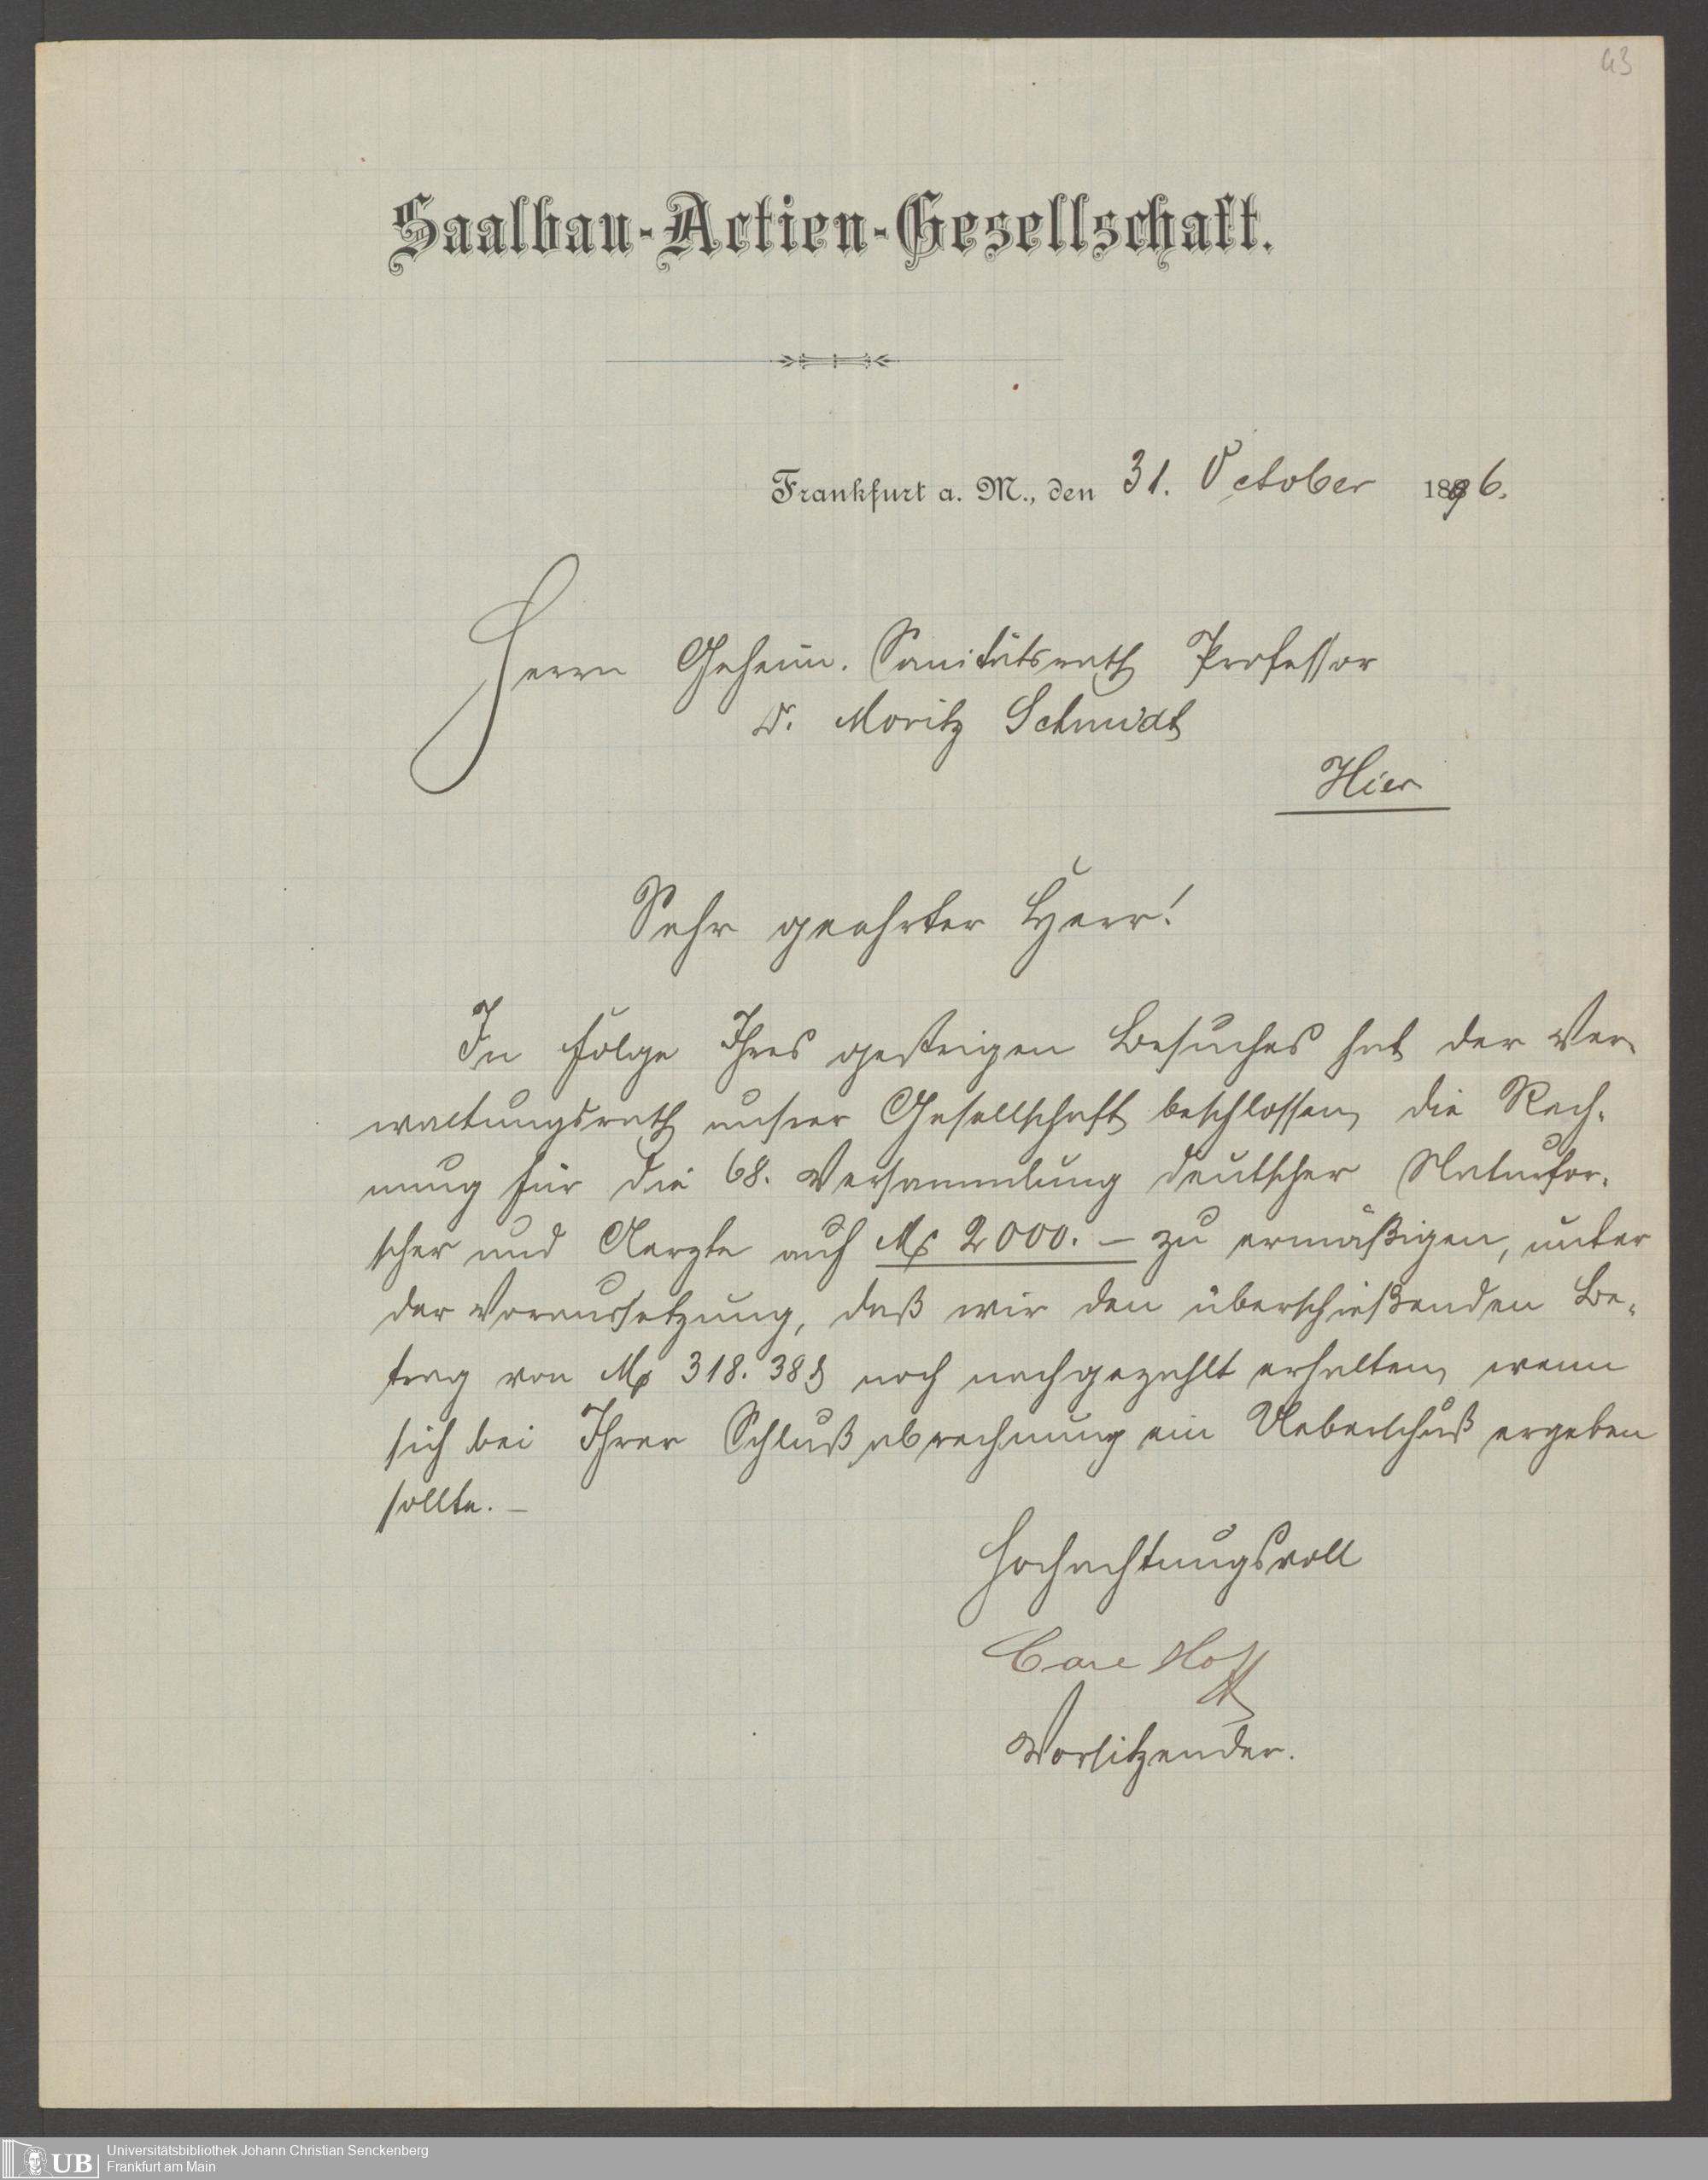 43
Saalbau-Actien-Gesellschaft.
Frankfurt a. M., den 31. October 1896.
Herrn Geheim. Sanitätsrath Professor
Dr. Moritz Schmidt
Hier
Sehr geehrter Herr!
In Folge Ihres gestrigen Besuches hat der Ver-
waltungsrath unsrer Gesellschaft beschlossen, die Rech-
nung für die 68. Versammlung deutscher Naturfor-
scher und Aerzte auf M 2000.– zu ermäßigen, unter
der Voraussetzung, daß wir den überschießenden Be-
trag von M 318. 38 ₰ noch nachgezahlt erhalten, wenn
sich bei Ihrer Schlußabrechnung ein Ueberschuß ergeben
sollte. –
Hochachtungsvoll
Carl Hoff
Vorsitzender.
UB
Universitätsbibliothek Johann Christian Senckenberg
Frankfurt am Main